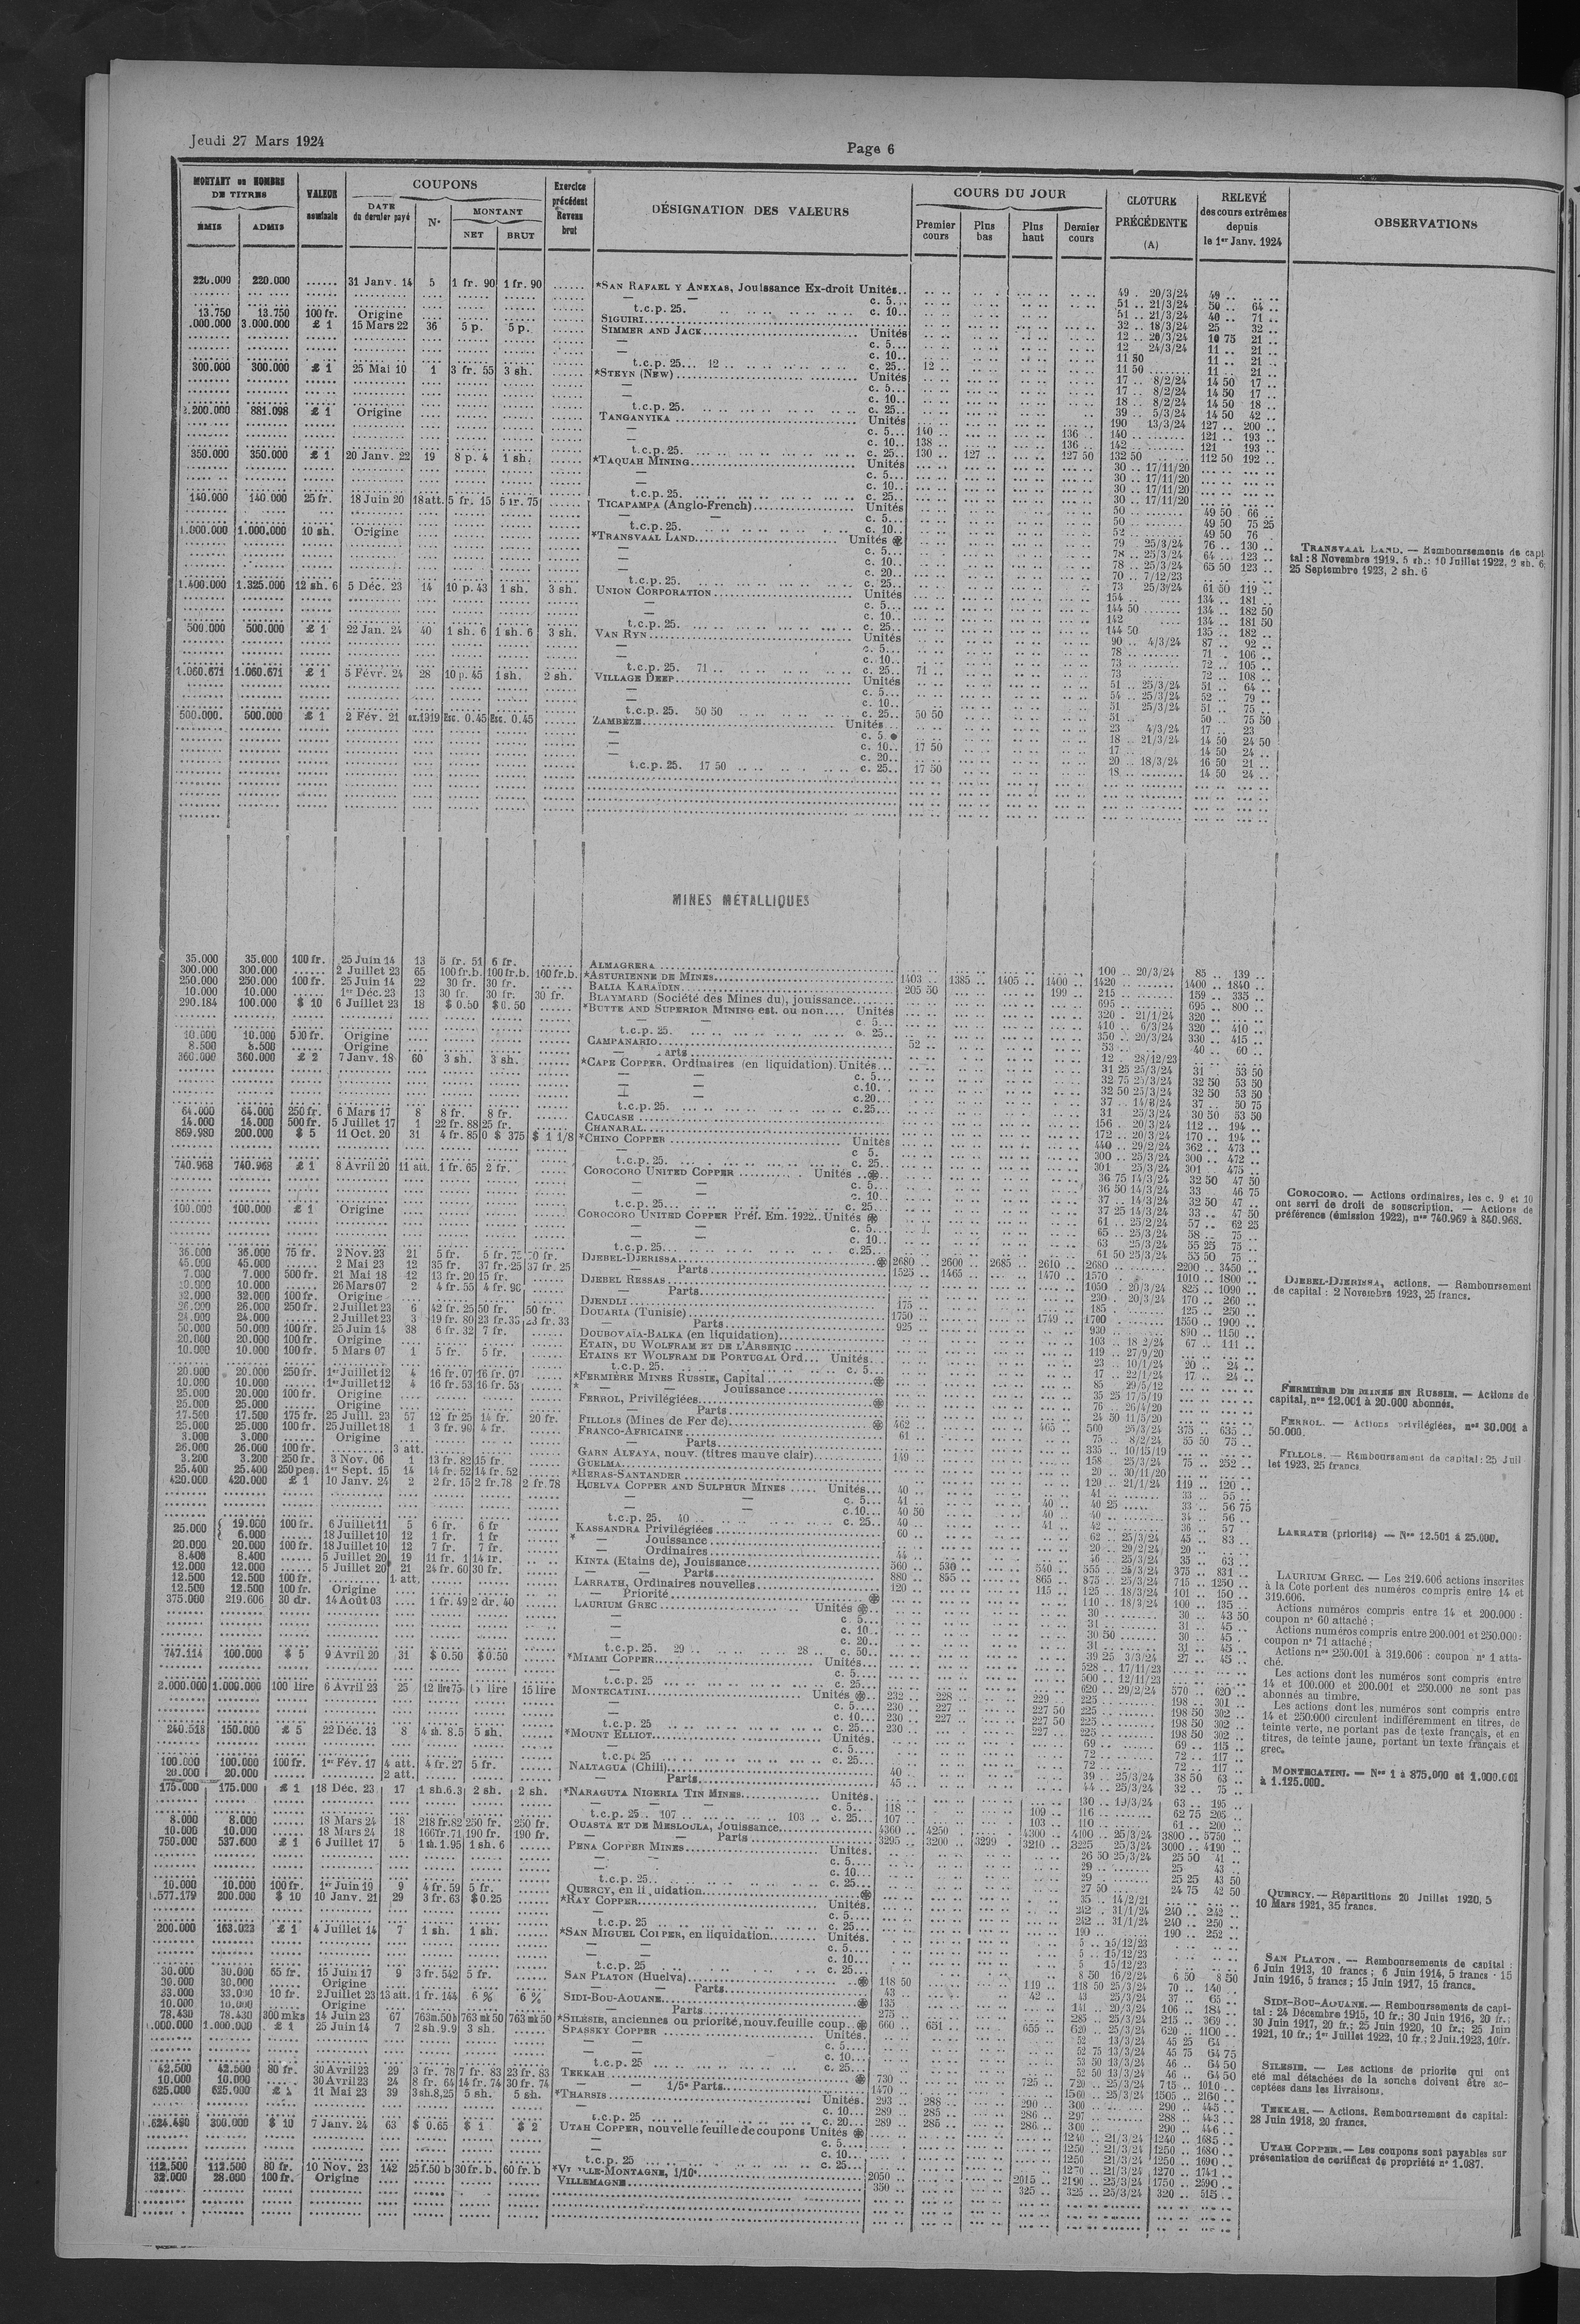 Jeudi 27 Mars 1924
Page 6
MONTANT ou NOMBRE DE TITRES
ÉMIS ADMIS
VALEUR nominale
COUPONS
DATE du dernier payé
N°
MONTANT
NET BRUT
Exercice précédent Revenu brut
DÉSIGNATION DES VALEURS
COURS DU JOUR
Premier cours
Plus bas
Plus haut
Dernier cours
CLOTURE PRÉCÉDENTE (A)
RELEVÉ des cours extrêmes depuis le 1er Janv. 1924
OBSERVATIONS
220.000 31 Janv. 14 5 1 fr. 90 1 fr. 90 *SAN RAFAEL Y ANEXAS, Jouissance Ex-droit Unités 49 20/3/24 49
c. 5 51 21/3/24 50 64
t.c.p. 25. c. 10 51 21/3/24 40 71
13.750 13.750 100 fr. Origine SIGUIRI 32 18/3/24 25 32
3.000.000 £ 1 15 Mars 22 36 5 p. 5 p. SIMMER AND JACK Unités 12 20/3/24 10 75 21
c. 5 12 24/3/24 11 21
c. 10 11 50 11 21
t.c.p. 25 12 c. 25 12 11 50 11 21
300.000 300.000 £ 1 25 Mai 10 1 3 fr. 55 3 sh. *STEYN (NEW) Unités 17 8/2/24 14 50 17
c. 5 17 8/2/24 14 50 17
c. 10 18 8/2/24 14 50 18
t.c.p. 25. c. 25 39 5/3/24 14 50 42
881.098 £ 1 Origine TANGANYIKA Unités 190 13/3/24 127 200
c. 5 140 136 140 121 193
c. 10 138 136 142 121 193
t.c.p. 25. c. 25 130 127 127 50 132 50 112 50 192
350.000 350.000 £ 1 20 Janv. 22 19 8 p. 4 1 sh. *TAQUAH MINING Unités 30 17/11/20
c. 5 30 17/11/20
c. 10 30 17/11/20
t.c.p. 25. c. 25 30 17/11/20
140.000 140.000 25 fr. 18 Juin 20 18 att. 5 fr. 15 5 fr. 75 TICAPAMPA (Anglo-French) Unités 50 49 50 66
c. 5 50 49 50 75 25
t.c.p. 25. c. 10 52 49 50 76
1.000.000 1.000.000 10 sh. Origine *TRANSVAAL LAND Unités 79 25/3/24 76 130
c. 5 78 25/3/24 64 123
c. 10 78 25/3/24 65 50 123
c. 20 70 7/12/23
t.c.p. 25. c. 25 73 25/3/24 61 50 119
TRANSVAAL LAND. — Remboursements de capital : 8 Novembre 1919, 5 sh.; 10 Juillet 1922, 2 sh. 6; 25 Septembre 1923, 2 sh. 6
1.400.000 1.325.000 12 sh. 6 5 Déc. 23 14 10 p. 43 1 sh. 3 sh. UNION CORPORATION Unités 154 134 181
c. 5 144 50 134 182 50
c. 10 142 134 181 50
c. 25 144 50 135 182
500.000 500.000 £ 1 22 Jan. 24 40 1 sh. 6 1 sh. 6 3 sh. VAN RYN Unités 90 4/3/24 87 92
c. 5 78 71 106
c. 10 73 72 105
t.c.p. 25. 71 c. 25 71 73 72 108
1.060.671 1.060.671 £ 1 5 Févr. 24 28 10 p. 45 1 sh. 2 sh. VILLAGE DEEP Unités 51 25/3/24 51 64
c. 5 54 25/3/24 52 79
c. 10 51 25/3/24 51 75
t.c.p. 25. 50 50 c. 25 50 50 51 50 75 50
500.000 500.000 £ 1 2 Fév. 21 ex.1919 Esc. 0.45 Esc. 0.45 ZAMBÈZE Unités 23 4/3/24 17 23
c. 5 18 21/3/24 14 50 24 50
c. 10 17 50 17 14 50 24
c. 20 20 18/3/24 16 50 21
t.c.p. 25. 17 50 c. 25 17 50 18 14 50 24
MINES MÉTALLIQUES
35.000 35.000 100 fr. 25 Juin 14 13 5 fr. 51 6 fr. ALMAGRERA 100 20/3/24 85 139
300.000 300.000 2 Juillet 23 65 100 fr.b. 100 fr.b. 100 fr.b. *ASTURIENNE DE MINES 1403 1385 1405 1400 1420 1400 1840
250.000 250.000 100 fr. 25 Juin 14 22 30 fr. 30 fr. BALIA KARAÏDIN 205 50 199 215 159 335
10.000 10.000 1er Déc. 23 13 30 fr. 30 fr. 30 fr. BLAYMARD (Société des Mines du), jouissance 695 695 800
290.184 100.000 $ 10 6 Juillet 23 18 $ 0.50 $ 0.50 *BUTTE AND SUPERIOR MINING est. ou non Unités 320 21/1/24 320
c. 5 410 6/3/24 320 410
t.c.p. 25. c. 25 350 20/3/24 330 415
10.000 10.000 500 fr. Origine CAMPANARIO 52 53 40 60
8.500 8.500 Origine 12 28/12/23
360.000 360.000 £ 2 7 Janv. 18 60 3 sh. 3 sh. *CAPE COPPER, Ordinaires (en liquidation) Unités 31 25 25/3/24 31 53 50
c. 5 32 75 25/3/24 32 50 53 50
c. 10 32 50 25/3/24 32 50 53 50
c. 20 37 37 50 75
t.c.p. 25. c. 25 31 25/3/24 30 50 53 50
64.000 64.000 250 fr. 6 Mars 17 8 8 fr. 8 fr. CAUCASE 156 20/3/24 112 194
14.000 14.000 500 fr. 5 Juillet 17 1 22 fr. 88 25 fr. CHANARAL 172 20/3/24 170 194
869.980 200.000 $ 5 11 Oct. 20 31 4 fr. 85 0 $ 375 $ 1 1/8 *CHINO COPPER Unités 440 29/2/24 362 473
c 5. 300 25/3/24 300 472
t.c.p. 25. c. 25 301 25/3/24 301 475
740.968 740.968 £ 1 8 Avril 20 11 att. 1 fr. 65 2 fr. COROCORO UNITED COPPER Unités 36 75 14/3/24 32 50 47 50
c. 5 36 50 14/3/24 33 46 75
c. 10 37 14/3/24 32 50 47
t.c.p. 25 c. 25 37 25 14/3/24 33 47 50
100.000 100.000 £ 1 Origine COROCORO UNITED COPPER Préf. Em. 1922 Unités 61 25/2/24 57 62 25
c. 5 65 25/3/24 58 75
c. 10 63 25/3/24 55 25 75
t.c.p. 25 c. 25 61 50 25/3/24 55 50 75
COROCORO. — Actions ordinaires, les c. 9 et 10 ont servi de droit de souscription. — Actions de préférence (émission 1922), nos 740.969 à 840.968.
36.000 36.000 75 fr. 2 Nov. 23 21 5 fr. DJEBEL-DJERISSA 2680 2600 2685 2610 2680 2200 3450
45.000 45.000 2 Mai 23 12 35 fr. 37 fr. 25 37 fr. 25 Parts 1525 1465 1470 1570 1010 1800
7.000 7.000 500 fr. 21 Mai 18 12 13 fr. 20 15 fr. DJEBEL RESSAS 1050 20/3/24 825 1090
10.000 10.000 26 Mars 07 2 4 fr. 55 4 fr. 96 Parts 230 20/3/24 170 260
32.000 32.000 100 fr. Origine DJENDLI 175 185 125 250
26.000 26.000 250 fr. 2 Juillet 23 6 42 fr. 25 50 fr. 50 fr. DOUARIA (Tunisie) 1750 1749 1700 1550 1900
24.000 24.000 2 Juillet 23 3 19 fr. 80 23 fr. 35 23 fr. 33 Parts 925 930 890 1150
50.000 50.000 100 fr. 25 Juin 14 38 6 fr. 32 7 fr. DOUBOVAÏA-BALKA (en liquidation) 103 18/2/24 67 111
20.000 20.000 100 fr. Origine ETAIN, DU WOLFRAM ET DE L'ARSENIC 119 27/9/20
10.000 10.000 100 fr. 5 Mars 07 1 5 fr. 5 fr. ETAINS ET WOLFRAM DE PORTUGAL Ord. Unités 23 10/1/24 20 24
t.c.p. 25. c. 5 17 22/1/24 17 24
20.000 20.000 250 fr. 1er Juillet 12 4 16 fr. 07 16 fr. 07 *FERMIÈRE MINES RUSSIE, Capital 85 29/5/12
10.000 10.000 1er Juillet 12 4 16 fr. 53 16 fr. 53 * Jouissance 35 25 17/5/19
25.000 20.000 100 fr. Origine FERROL, Privilégiées 76 26/4/20
25.000 25.000 Origine Parts 24 50 11/5/20
17.500 17.500 175 fr. 25 Juill. 23 57 12 fr 25 14 fr. 20 fr. FILLOLS (Mines de Fer de) 462 465 500 26/3/24 375 635
25.000 25.000 100 fr. 25 Juillet 18 1 3 fr. 90 4 fr. FRANCO-AFRICAINE 61 75 8/2/24 55 50 75
3.000 3.000 Origine Parts 335 10/15/19
26.000 26.000 100 fr. 3 att. GARN ALFAYA, nouv. (titres mauve clair) 149 158 25/3/24 75 252
3.200 3.200 250 fr. 3 Nov. 06 1 13 fr. 82 15 fr. GUELMA 20 30/11/20
25.400 25.400 250 pes. 1er Sept. 15 14 14 fr. 52 14 fr. 52 *HERAS-SANTANDER 120 21/1/24 119 120
420.000 420.000 £ 1 10 Janv. 24 2 2 fr. 15 2 fr. 78 2 fr. 78 HUELVA COPPER AND SULPHUR MINES Unités 40 41 33 55
c. 5 41 40 40 25 33 56 75
c. 10 40 50 40 40 34 56
t.c.p. 25. 40 c. 25 40 41 42 36 57
DJEBEL-DJERISSA, actions. — Remboursement de capital : 2 Novembre 1923, 25 francs.
FERMIÈRE DE MINES EN RUSSIE. — Actions de capital, nos 12.001 à 20.000 abonnés.
FERROL. — Actions privilégiées, nos 30.001 à 50.000.
FILLOLS. — Remboursement de capital : 25 Juillet 1923, 25 francs
25.000 { 19.000 100 fr. 6 Juillet 11 5 6 fr. 6 fr KASSANDRA Privilégiées 60 62 25/3/24 45 83
6.000 18 Juillet 10 12 1 fr. 1 fr * Jouissance 20 29/2/24 20
20.000 20.000 100 fr. 18 Juillet 10 12 7 fr. 7 fr. Ordinaires 44 46 25/3/24 35 63
8.400 8.400 5 Juillet 20 19 11 fr. 1 14 fr. KINTA (Etains de), Jouissance 560 530 540 555 25/3/24 375 831
12.000 12.000 5 Juillet 20 21 24 fr. 60 30 fr. Parts 880 855 865 875 25/3/24 715 1250
12.500 12.500 100 fr. 1 att. LARRATH, Ordinaires nouvelles 120 115 125 18/3/24 101 150
12.500 12.500 100 fr. Origine Priorité 110 18/3/24 100 135
375.000 219.606 30 dr. 14 Août 03 1 fr. 49 2 dr. 40 LAURIUM GREC Unités 30 30 43 50
c. 5 31 31 45
c. 10 30 50 30 45
c. 20 31 31 45
t.c.p. 25. 29 28 c. 50 39 25 3/3/24 27 45
LARRATH (priorité) — Nos 12.501 à 25.000.
LAURIUM GREC. — Les 219.606 actions inscrites à la Cote portent des numéros compris entre 14 et 319.606.
Actions numéros compris entre 14 et 200.000 : coupon n° 60 attaché ;
Actions numéros compris entre 200.001 et 250.000 : coupon n° 71 attaché ;
Actions nos 250.001 à 319.606 : coupon n° 1 attaché.
Les actions dont les numéros sont compris entre 14 et 100.000 et 200.001 et 250.000 ne sont pas abonnés au timbre.
Les actions dont les numéros sont compris entre 14 et 250.000 circulent indifféremment en titres, de teinte verte, ne portant pas de texte français, et en titres, de teinte jaune, portant un texte français et grec.
747.114 100.000 $ 5 9 Avril 20 31 $ 0.50 $ 0.50 *MIAMI COPPER Unités 528 17/11/23
c. 5 500 12/11/23
t.c.p. 25 c. 25 620 29/2/24 570 620
2.000.000 1.000.000 100 lire 6 Avril 23 25 12 lire 75 15 lire 15 lire MONTECATINI Unités 232 228 229 225 198 301
c. 5 230 227 227 50 225 198 50 302
c. 10 230 227 227 50 225 198 50 302
t.c.p. 25 c. 25 230 227 225 198 50 302
240.518 150.000 £ 5 22 Déc. 13 8 4 sh. 8.5 5 sh. *MOUNT ELLIOT Unités 69 69 115
c. 5 72 72 117
t.c.p. 25 c. 25 72 72 117
100.000 100.000 100 fr. 1er Fév. 17 4 att. 4 fr. 27 5 fr. NALTAGUA (Chili) 40 39 25/3/24 38 50 63
20.000 20.000 2 att. Parts 45 44 25/3/24 32 75
MONTECATINI. — Nos 1 à 875.000 et 1.000.001 à 1.125.000.
175.000 175.000 £ 1 18 Déc. 23 17 1 sh.6.3 2 sh. 2 sh. *NARAGUTA NIGERIA TIN MINES Unités 130 19/3/24 63 195
c. 5 118 109 116 62 75 205
t.c.p. 25 107 103 c. 25 107 103 110 61 200
8.000 8.000 18 Mars 24 18 218 fr.82 250 fr. 250 fr. OUASTA ET DE MESLOULA, Jouissance 4360 4250 4300 4100 25/3/24 3800 5750
10.000 10.000 18 Mars 24 18 166 fr.71 190 fr. 190 fr. Parts 3295 3200 3299 3210 3225 25/3/24 3000 4190
750.000 537.600 £ 1 6 Juillet 17 5 1 sh. 1.95 1 sh. 6 PENA COPPER MINES Unités 26 50 25/3/24 25 50 41
c. 5 29 25 43
c. 10 29 25 25 43 50
t.c.p. 25 c. 25 27 50 24 75 42 50
10.000 10.000 100 fr. 1er Juin 19 9 4 fr. 59 5 fr. QUERCY, en liquidation 35 14/2/21
200.000 $ 10 10 Janv. 21 29 3 fr. 63 $ 0.25 *RAY COPPER Unités 242 31/1/24 240 242
c. 5 242 31/1/24 240 250
t.c.p. 25 c. 25 190 190 252
QUERCY. — Répartitions 20 Juillet 1920, 5
10 Mars 1921, 35 francs.
200.000 163.023 £ 1 4 Juillet 14 7 1 sh. 1 sh. *SAN MIGUEL COPPER, en liquidation Unités 5 15/12/23
c. 5 5 15/12/23
c. 10 5 15/12/23
t.c.p. 25 c. 25 8 50 16/2/24 6 50 8 50
30.000 30.000 65 fr. 15 Juin 17 9 3 fr. 542 5 fr. SAN PLATON (Huelva) 118 50 119 118 50 25/3/24 70 140
30.000 30.000 Origine Parts 43 42 43 25/3/24 37 65
33.000 33.000 10 fr. 2 Juillet 23 13 att. 1 fr. 144 6 % 6 % SIDI-BOU-AOUANE 135 141 20/3/24 106 184
10.000 10.000 Origine Parts 275 285 25/3/24 215 369
78.430 78.430 300 mks 14 Juin 23 67 763m.50b 763 mk 50 763 mk 50 *SILÉSIE, anciennes ou priorité, nouv. feuille coup. 660 651 655 620 25/3/24 620 1100
1.000.000 £ 1 25 Juin 14 7 2 sh. 9.9 3 sh. SPASSKY COPPER Unités 52 13/3/24 45 25 64
c. 5 52 75 13/3/24 45 75 64 75
c. 10 53 50 13/3/24 46 64 50
t.c.p. 25 c. 25 52 50 13/3/24 46 64 50
SAN PLATON. — Remboursements de capital : 6 Juin 1913, 10 francs ; 6 Juin 1914, 5 francs ; 15 Juin 1916, 5 francs ; 15 Juin 1917, 15 francs.
SIDI-BOU-AOUANE. — Remboursements de capital : 24 Décembre 1915, 10 fr.; 30 Juin 1916, 20 fr.; 30 Juin 1917, 20 fr.; 25 Juin 1920, 10 fr.; 25 Juin 1921, 10 fr.; 1er Juillet 1922, 10 fr.; 2 Juil. 1923, 10 fr.
42.500 42.500 80 fr. 30 Avril 23 29 3 fr. 78 7 fr. 83 23 fr. 83 TEKKAH 730 725 720 25/3/24 715 1010
10.000 10.000 30 Avril 23 24 8 fr. 64 14 fr. 74 30 fr. 74 1/5e Parts 1470 1560 25/3/24 1505 2160
625.000 625.000 £ 1 11 Mai 23 39 3 sh. 8,25 5 sh. 5 sh. *THARSIS Unités 293 288 290 300 290 445
c. 10 289 285 286 297 288 443
t.c.p. 25 c. 20 289 285 286 300 290 446
300.000 $ 10 7 Janv. 24 63 $ 0.65 $ 1 $ 2 UTAH COPPER, nouvelle feuille de coupons Unités 1240 21/3/24 1240 1685
c. 5 1250 21/3/24 1250 1680
c. 10 1250 21/3/24 1250 1690
c. 25 1270 21/3/24 1270 1741
112.500 112.500 80 fr. 10 Nov. 23 142 25 f. 50 b 30 fr. b. 60 fr. b MONTAGNE, 1/10e 2050 2015 2190 25/3/24 1750 2590
32.000 28.000 100 fr. Origine VILLEMAGNE 350 325 325 25/3/24 320 515
SILESIE. — Les actions de priorité qui ont eté mal détachées de la souche doivent être acceptées dans les livraisons.
TEKKAH. — Actions, Remboursement de capital : 28 Juin 1918, 20 francs.
UTAH COPPER. — Les coupons sont payables sur présentation de certificat de propriété n° 1.087.